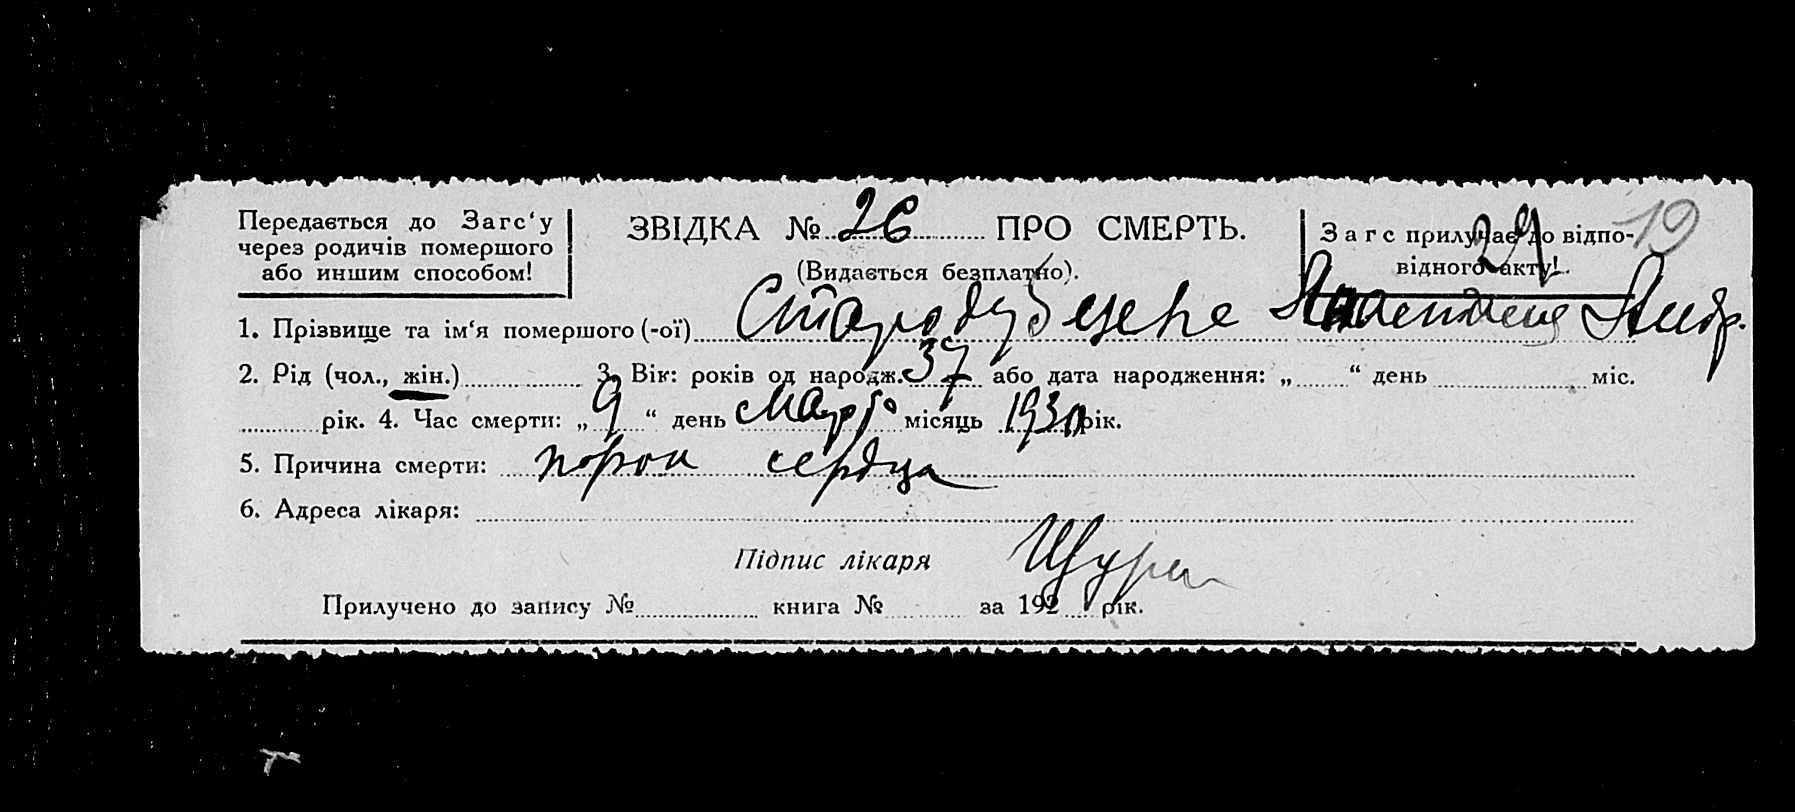 Передається до Загс'у
через родичів помершого
або иншим способом!
ЗВІДКА № 26 ПРО СМЕРТЬ.
(Видається безплатно).
29 19
Загс прилучає до відпо-
відного акту!
1. Прізвище та ім'я помершого (-ої) Стародубцеве Анастасия Андр.
2. Рід (чол., жін.) 3. Вік: років од народж. 37 або дата народження: „ “ день міс.
рік. 4. Час смерти: „ 9 “ день март місяць 1930 рік.
5. Причина смерти: порок сердца
6. Адреса лікаря:
Підпис лікаря
Прилучено до запису № книга № за 192 рік.